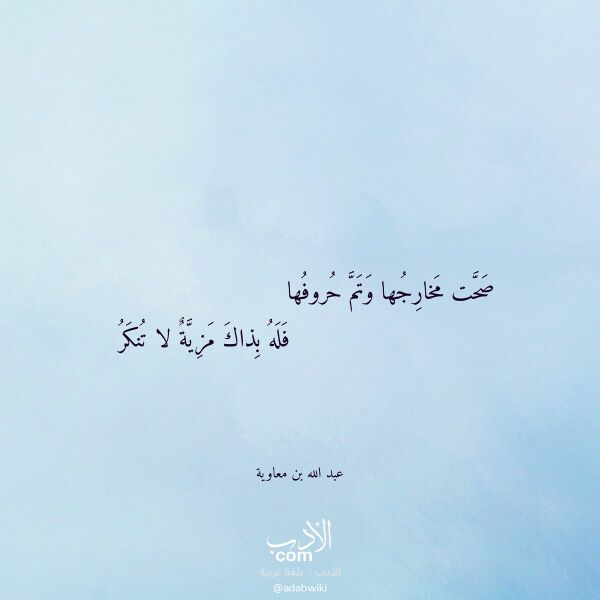 صَحَّت مَخارِجُها وَتَمَّ حُروفُها
فَلَهُ بِذاكَ مَزِيَّةٌ لا تُنكَرُ
عبد الله بن معاوية
الأدب
com
الأدب .. بلغة عربية
@adabwiki